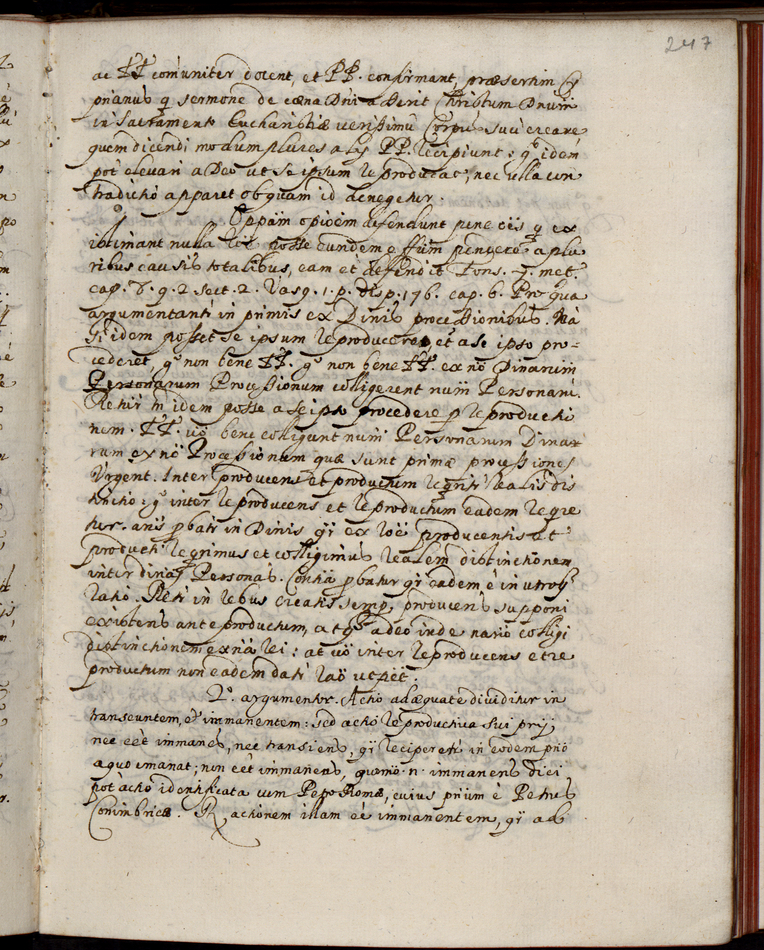 247
ac TT comuniter docent, et PP. confirmant, præsertim Cy
prianus q sermone de cæna Dni asserit Christum Dnum
in Sacramento Eucharistiæ verissimū Corpus suū creare
quem dicendi modum plures alij PP. recipiunt: gº idem
pot elevari a Deo ut se ipsum reproducat, nec ulla con
tradictio apparet ob quam id denegetur.
Oppāīm opioem defendunt pene oēs q ex
istimant nulla posse eundem effūm pendere a plu
ribus causis totalibus, eam et defendit Fons. 7. met.
cap. 8. q. 2 sect. 2. Vasq. 1. p. disp. 176. cap. 6. Pro qua
argumentant in primis ex Dinis processionibus. Nā
si idem posset se ipsum reproducere, et a se ipso pro=
cederet gº non bene TT. gº non bene TT. ex nō Dinarum
Personarum Processionum colligerent num Personarū.
Retur idem posse a se ipso procedere p reproductio
nem. TT. vō bene colligunt num Personarum Dinar
rum ex nō Processionum quæ sunt primæ processiones
Urgent. Inter producens et productum realis dis
tinctio: gº inter reproducens et reproductum eadem reqre
tur. ans pbatr in Dinis qī ex roē producentis et
producti et colligimus realem distinctionem
inter dinas Personas. Conā pbatur qī eadem ē in utroqꝫ
ratio. Retr in rebus creatis semp producens supponi
existens ante productum, atqꝫ adeo inde nario colligi
distinctionem ex nā rei: at vō inter reproducens et re
productum non eadem dari raō
2º. argumentor. Actio adæquate dividitur in
transeuntem, et immanentem: sed actio reproductiva sui
nec eēt immanēs, nec transiens, qī reciperetr in eodem pnō
a quo emanat; non eēt immanens, quomō n immanens dici
pot actio identificata cum Petro Romæ, cuius prium ē Petrus
Conimbricæ. R actionem illam eē immanentem, qī ad